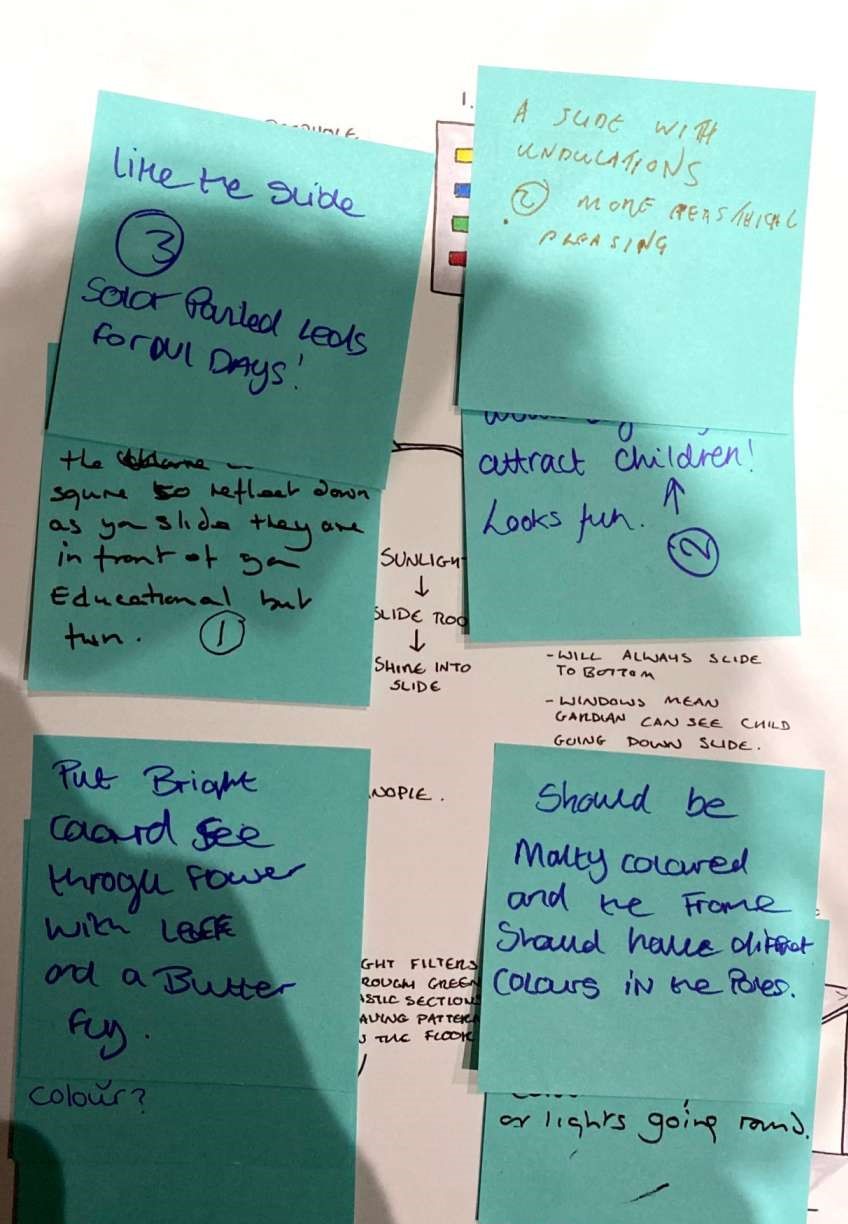 1.
Like the slide
3
Solar Panled Leds
For Dul DAYS!
A SLIDE WITH
UNDULATIONS
2 MORE
PLEASING
the
squre so reflect down
as you slide they are
in front of you
Educational but
fun. 1
attract children!
Looks fun.
2
SUNLIGH
↓
SLIDE ROO
↓
SHINE INTO
SLIDE
- WILL ALWAYS SLIDE
TO BOTTOM
- WINDOWS MEAN
GARDIAN CAN SEE CHILD
GOING DOWN SLIDE.
Put Bright
Colourd See
through Flower
with LEEF
and a Butter
Fly.
Colour?
NOPIE.
GHT FILTERS
ROUGH GREEN
ASTIC SECTIONS
AVING PATTERN
THE FLOOR
Should be
Malty coloured
and the Frame
Should have
Colours in the Poles.
or lights going round.